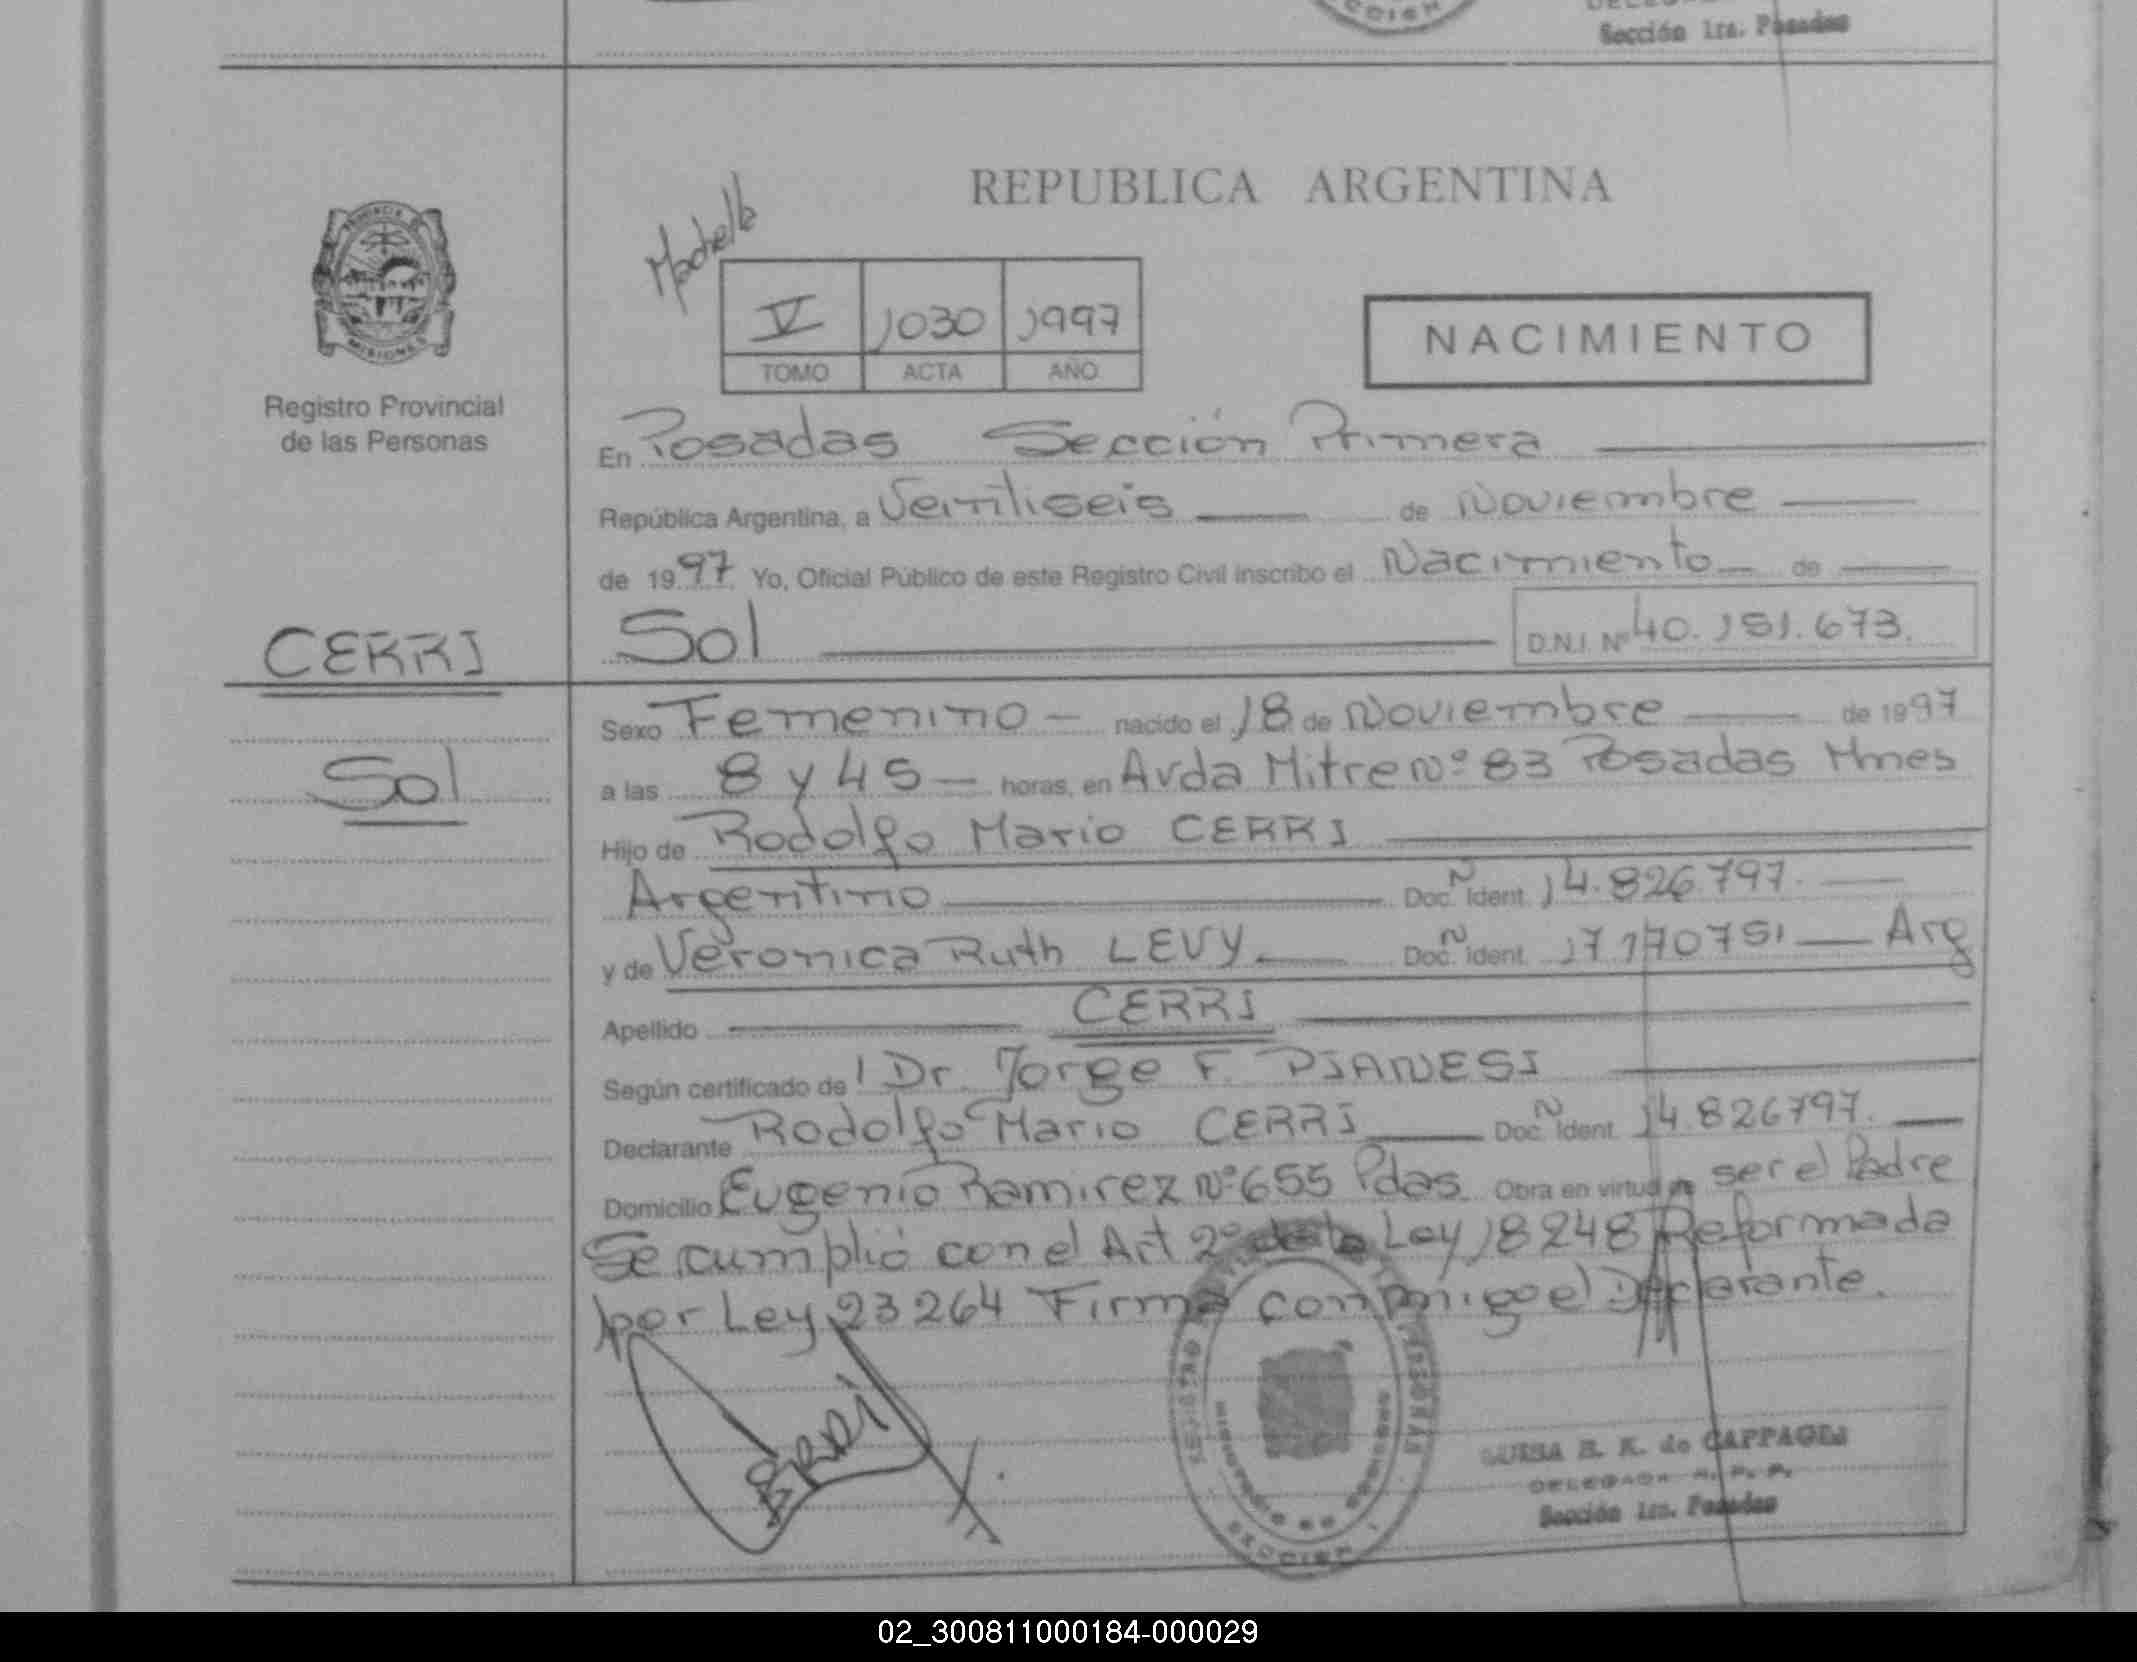 CCION
Sección 1ra. Posadas
REPUBLICA ARGENTINA
MISIONES
Registro Provincial
de las Personas
V 1030 1997
TOMO ACTA AÑO
NACIMIENTO
En Posadas Sección Primera
República Argentina, a Veintiseis de Noviembre
de 1997 Yo, Oficial Público de este Registro Civil inscribo el Nacimiento de
CERRI
Sol
D.N.I. Nº 40.151.673.
Sol
Sexo Femenino nacido el 18 de Noviembre de 1997
a las 8 y 45 horas, en Avda Mitre Nº 83 Posadas Mnes
Hijo de Rodolfo Mario CERRI
Argentino Doc. N Ident. 14.826.797.
y de Veronica Ruth LEVY Doc. N Ident. 17170751 Arg
Apellido CERRI
Según certificado de Dr. Jorge F. PIANESI
Declarante Rodolfo Mario CERRI Doc. N Ident. 14.826797.
Domicilio Eugenio Ramirez Nº 655 Pdas. Obra en virtud de ser el Padre
Se cumplió con el Art 2º de la Ley 18248 Reformada
por Ley 23264 Firma conmigo el Declarante.
REGISTRO PERSONAS
SECCION
de CAPPAGLI
DELEGADA R. P. P.
Sección 1ra. Posadas
02_300811000184-000029